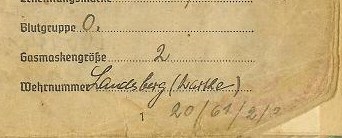 Blutgruppe O.
Gasmaskengröße 2
Wehrnummer Landsberg (Warthe)
20/61/2/
1